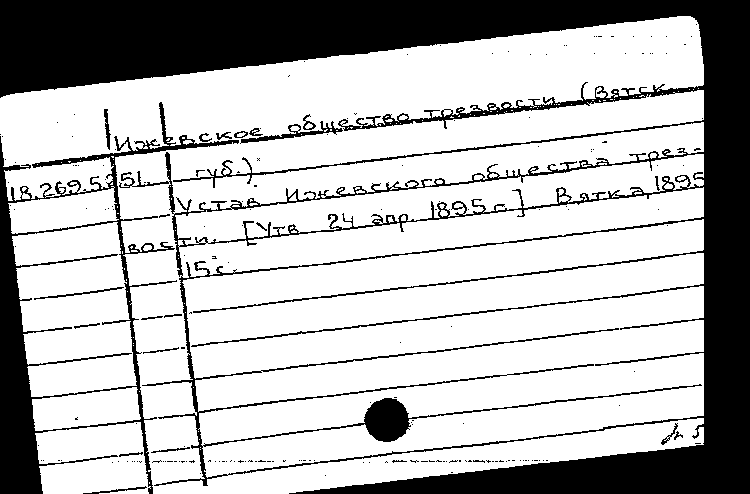 Ижевское общество трезвости (Вятск.
губ.)
18.269.5.251.
Устав Ижевского общества трез-
вости. [Утв. 24 апр. 1895 г.] Вятка, 1895
15 с.